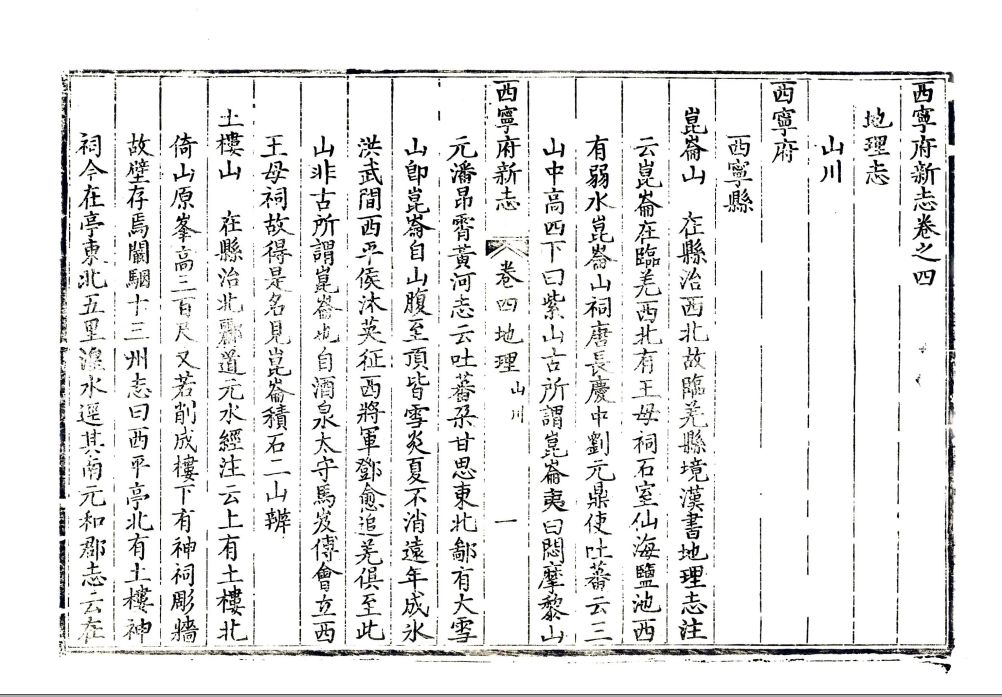 西寧府新志卷之四
地理志
山川
西寧府
西寧縣
崑崙山　在縣治西北故臨羌縣境漢書地理志注
云崑崙在臨羌西北有王母祠石室仙海鹽池西
有弱水崑崙山祠唐長慶中劉元鼎使吐蕃云三
山中高西下曰紫山古所謂崑崙夷曰悶摩黎山
西寧府新志　卷四地理　山川　一
元潘昂霄黃河志云吐蕃朶甘思東北鄙有大雪
山卽崑崙自山腹至頂皆雪炎夏不消遠年成氷
洪武間西平侯沐英征西將軍鄧愈追羌俱至此
山非古所謂崑崙也自酒泉太守馬岌傅會立西
王母祠故得是名見崑崙積石二山辨
土樓山　在縣治北酈道元水經注云上有土樓北
倚山原峯高三百尺又若削成樓下有神祠彫牆
故壁存焉闞駰十三州志曰西平亭北有土樓神
祠今在亭東北五里湟水逕其南元和郡志云在